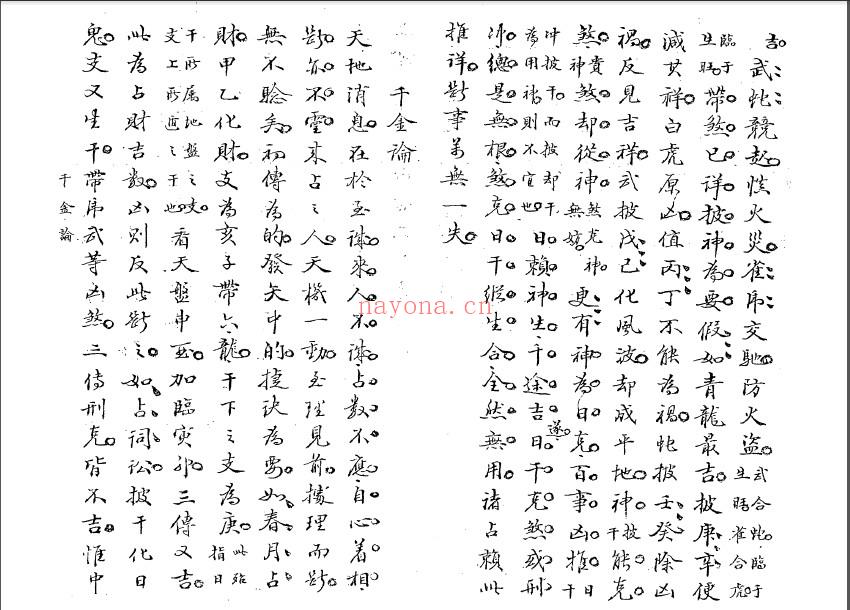 吉武蛇競起慎火災雀虎交馳防火盜武合蛇臨于生旺雀合虎
臨于生旺帶煞已詳披神為要假如青龍最吉披庚辛便
減其祥白虎原凶值丙丁不能為禍蛇披壬癸除凶
禍反見吉祥武披戊己化風波却成平地神披干能克
煞貴神煞却從神煞克神無妨更有神為日克百事凶推日干
為用則不宜也日賴神生干途吉遂日干克煞或刑
沖總是無根煞克日干縱生合全然無用諸占賴此
推詳斷事萬無一失
千金論
天地消息在於至誠來人不誠占數不應自心着相
斷亦不靈來占之人天機一動至理見前據理而斷
無不驗矣初傳為的發矢中的捷訣為要如春月占
財甲乙化財支為亥子帶六龍干下之支為庚此殆指日
干所属地盤之支支上所遁之干也看天盤申酉加臨寅卯三傳又吉
此為占財吉數凶則反此斷之如占詞訟披干化日
鬼支又生干帶虎武等凶煞三傳刑克皆不吉惟中
千金論
nayona.cn